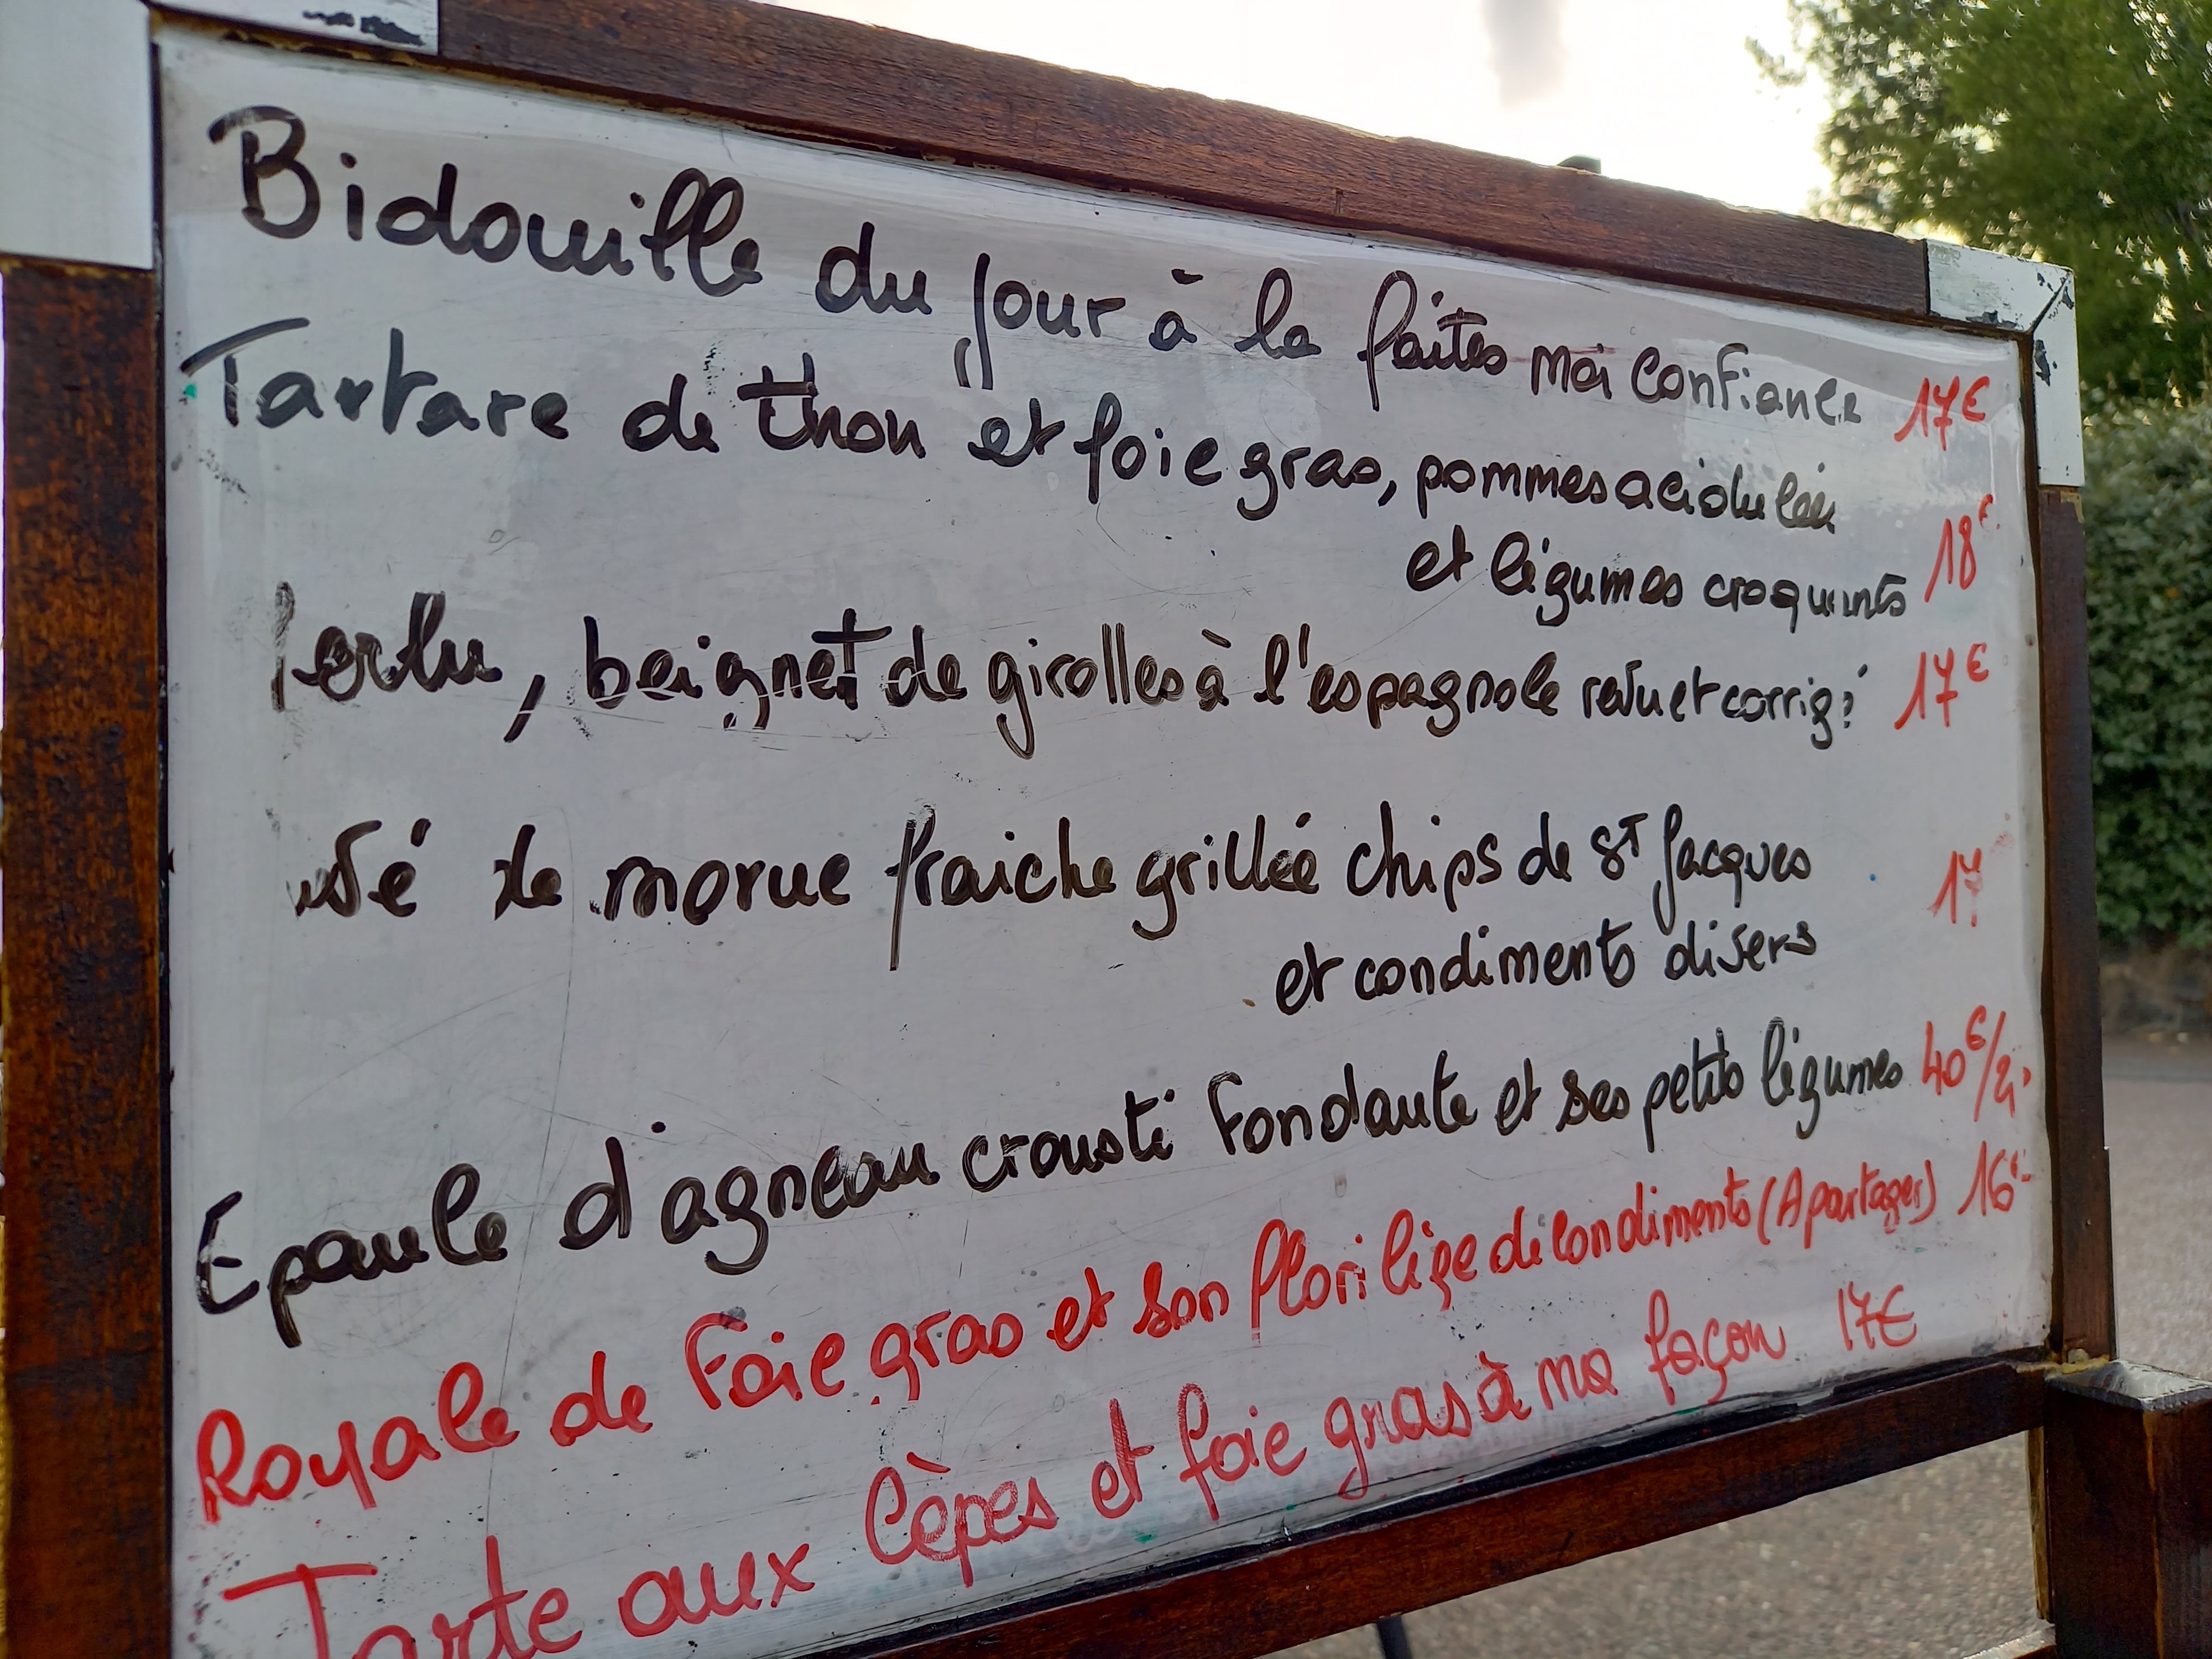 Bidouille du Jour à la faites moi Confiance 17€
Tartare de thon et foie gras, pommes acidulées
et légumes croquants 18€
beignet de girolles à l'espagnole revu et corrigé 17€
de morue fraiche grillée chips de St Jacques 17
et condiments divers
Epaule d'agneau crousti Fondante et ses petits légumes 40€/2
Royale de Foie gras et son florilège de Condiments (A partager) 16€
Tarte aux Cèpes et foie gras à ma façon 17€